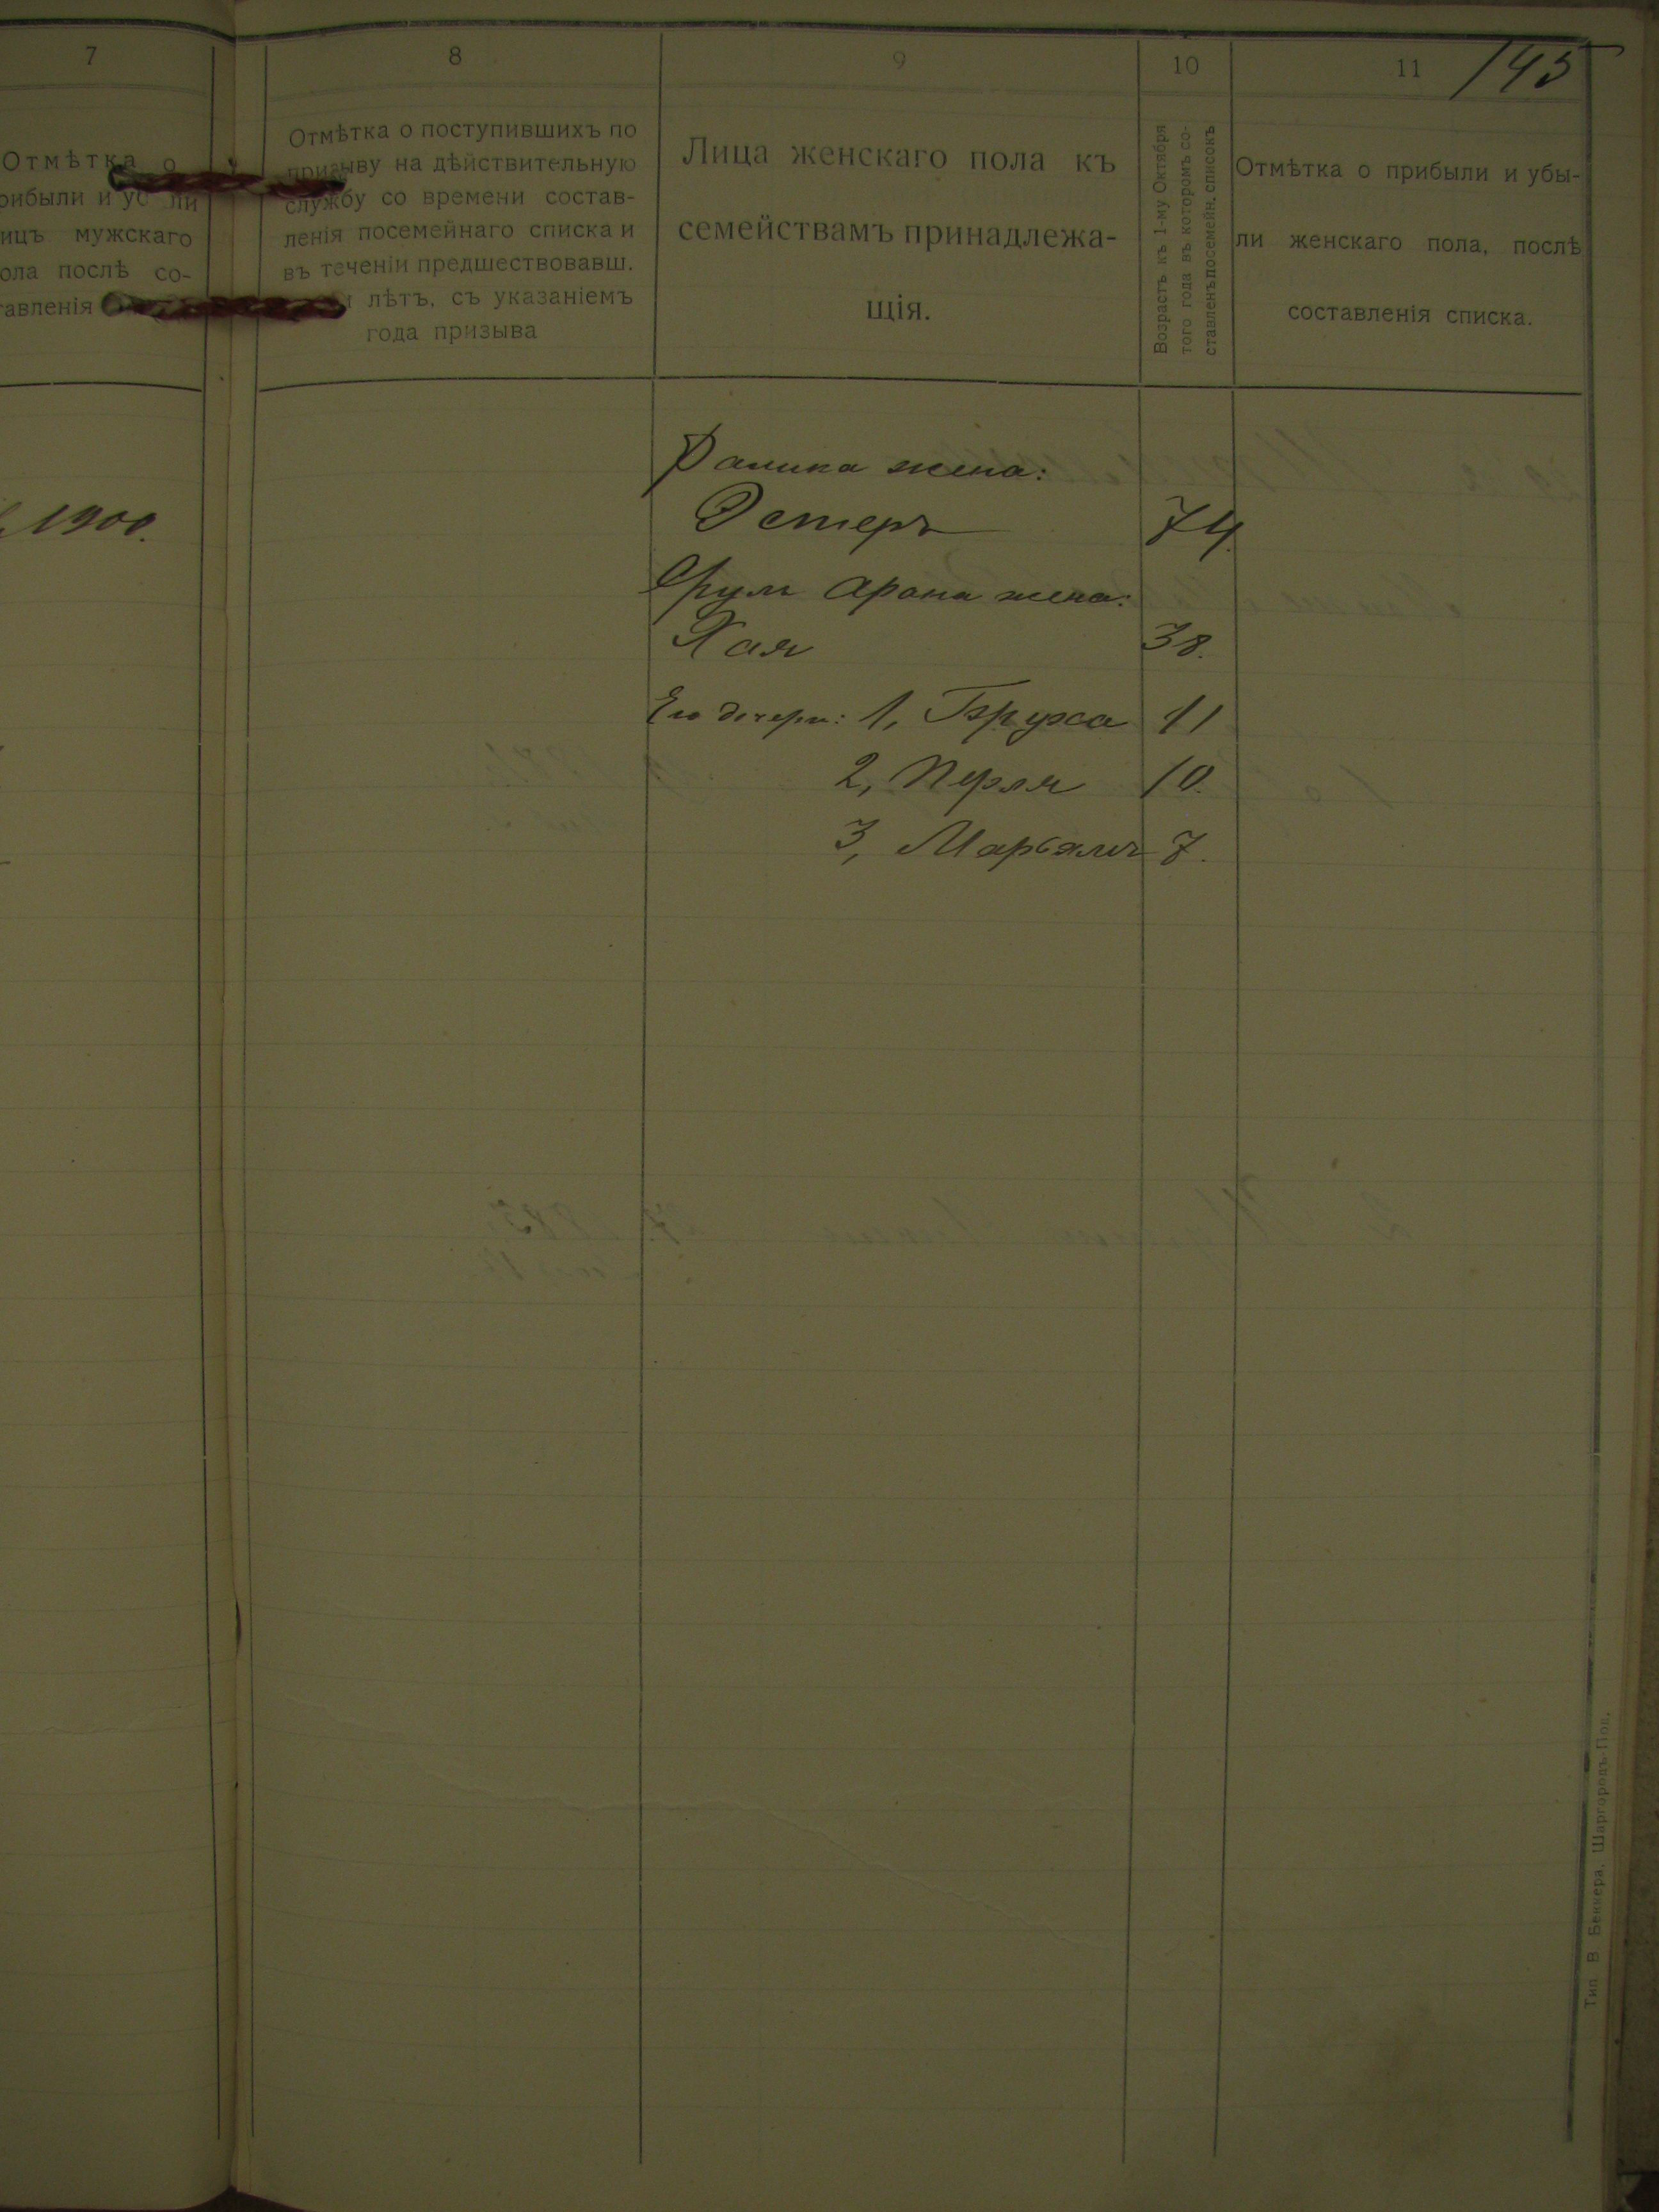 145
7
Отмѣтка о
рибыли и уб ли
ицъ мужскаго
ола послѣ со-
тавленія
1900.
8
Отмѣтка о поступившихъ по
призыву на дѣйствительную
службу со времени состав-
ленія посемейнаго списка и
въ теченіи предшествовавш.
лѣтъ, съ указаніемъ
года призыва
9
Лица женскаго пола къ
семействамъ принадлежа-
щія.
10
Возрастъ къ 1-му Октября
того года въ которомъ со-
ставленъ посемейн. списокъ
11
Отмѣтка о прибыли и убы-
ли женскаго пола, послѣ
составленія списка.
жена:
Эстеръ 74.
Арона жена:
Хая 38.
Его дочери: 1, Бруха 11
2, Перля 10.
3, Марьямъ 7.
Тип. В Беккера, Шаргородъ-Под.